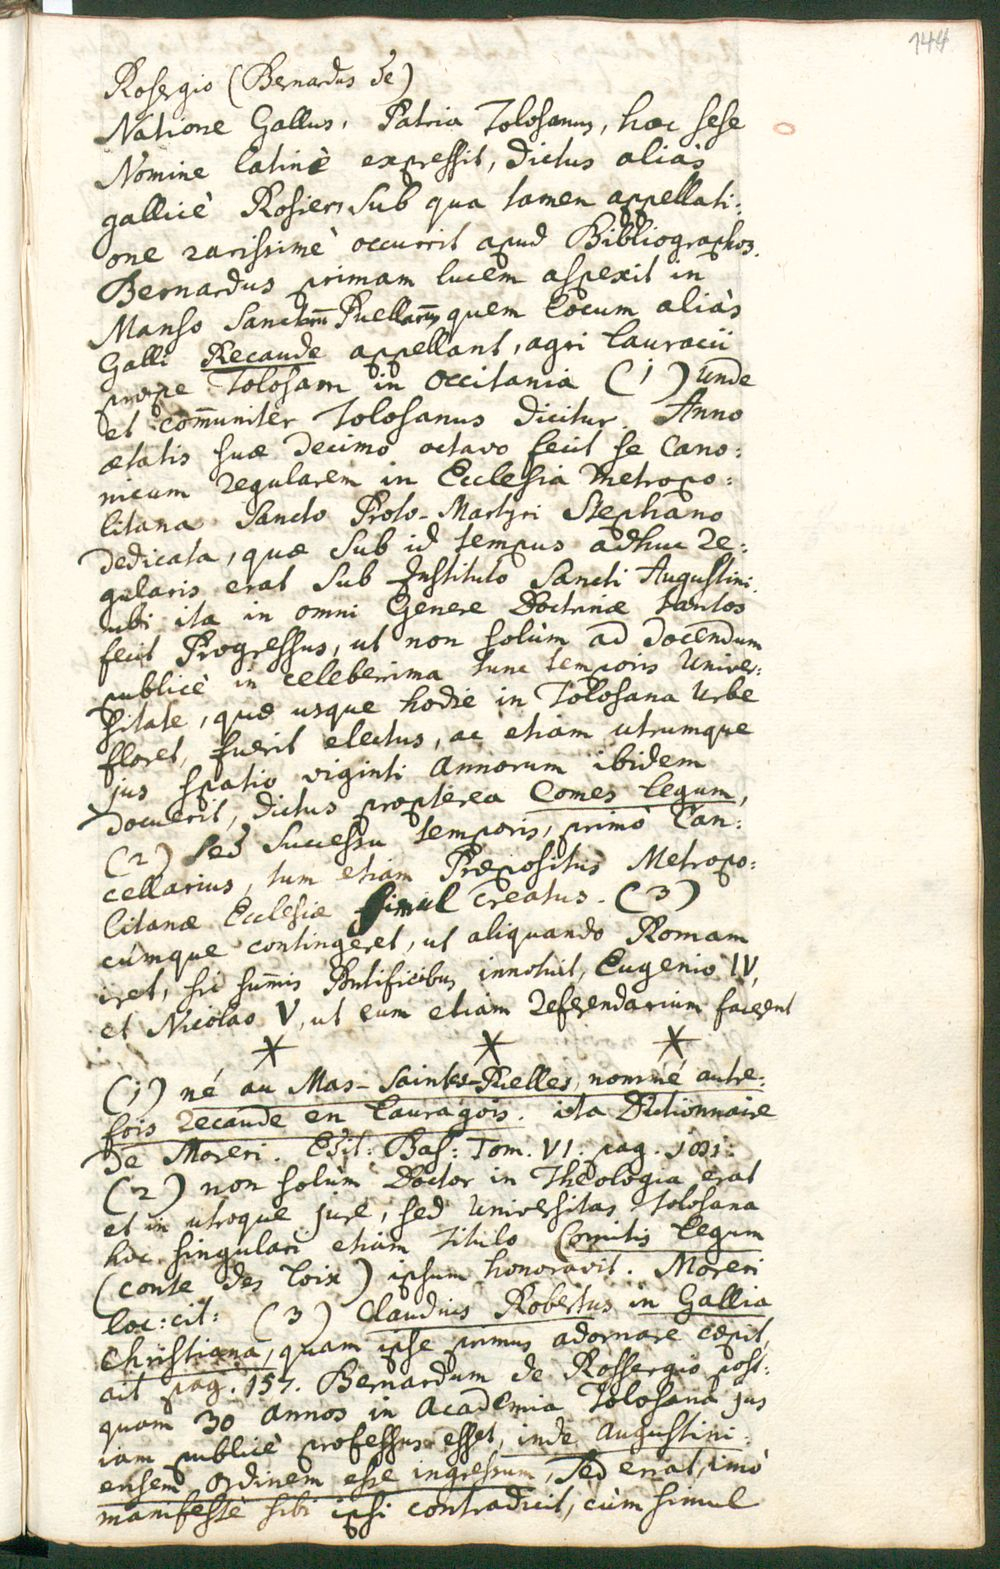 144
Rosergio (Bernardus de)
Natione Gallus, Patria Tolosanus, hoc sese
Nomine latinè expressit, dictus aliàs
gallicè Rosier, sub qua tamen appellati:
one rarissimè occurrit apud Bibliographos.
Bernardus primam lucem aspexit in
Manso Sanctarum̄ Puellarum̄ quem locum aliàs
Galli Recaude appellant, agri Lauracii
prope Tolosam in Occitania (1) Unde
et com̄uniter Tolosanus dicitur. Anno
ætatis suæ decimo octavo fecit se Cano:
nicum regularem in Ecclesia Metropo:
litana Sancto Proto-Martyri Stephano
dedicata, quæ sub id tempus adhuc re:
gularis erat sub Instituto Sancti Augustini.
ubi ita in omni Genere Doctrinæ tantos
fecit Progressus, ut non solùm ad docendum
publicè in celeberima tunc temporis Univer:
sitate, quæ usque hodie in Tolosana Urbe
floret, fuerit electus, ac etiam utrumque
jus spatio viginti Annorum ibidem
docuerit, dictus propterea Comes legum,
(2) sed successu temporis, primò Can:
cellarius, tum etiam Præpositus Metropo:
litanæ Ecclesiæ simul creatus. (3)
cùmque contingeret, ut aliquando Romam
iret, sic sum̄is Pontificibus innotuit, Eugenio IV,
et Nicolao V, ut eum etiam Referendarium facerent
* * *
(1) né au Mas-Saintes-Puelles, nommé autre:
fois recaude en Lauragois. ita Dictionnaire
de Moreri. Edit: Bas: Tom. VI. pag. 1031.
(2) non solùm Doctor in Theologia erat
et in utroque jure, sed Universitas Tolosana
hoc singulari etiam titulo Comitis legum
(conte des loix) ipsum honoravit. Moreri
loc: cit: (3) Claudius Robertus in Gallia
Christiana, quam ipse primus adornare cœpit,
ait pag. 157. Bernardum de Rossergio post:
quam 30 annos in Academia Tolosana jus
iam publicè professus esset, inde Augustini:
ensem Ordinem esse ingressum, sed errat, imò
manifestè sibi ipsi contradicit, cùm simul